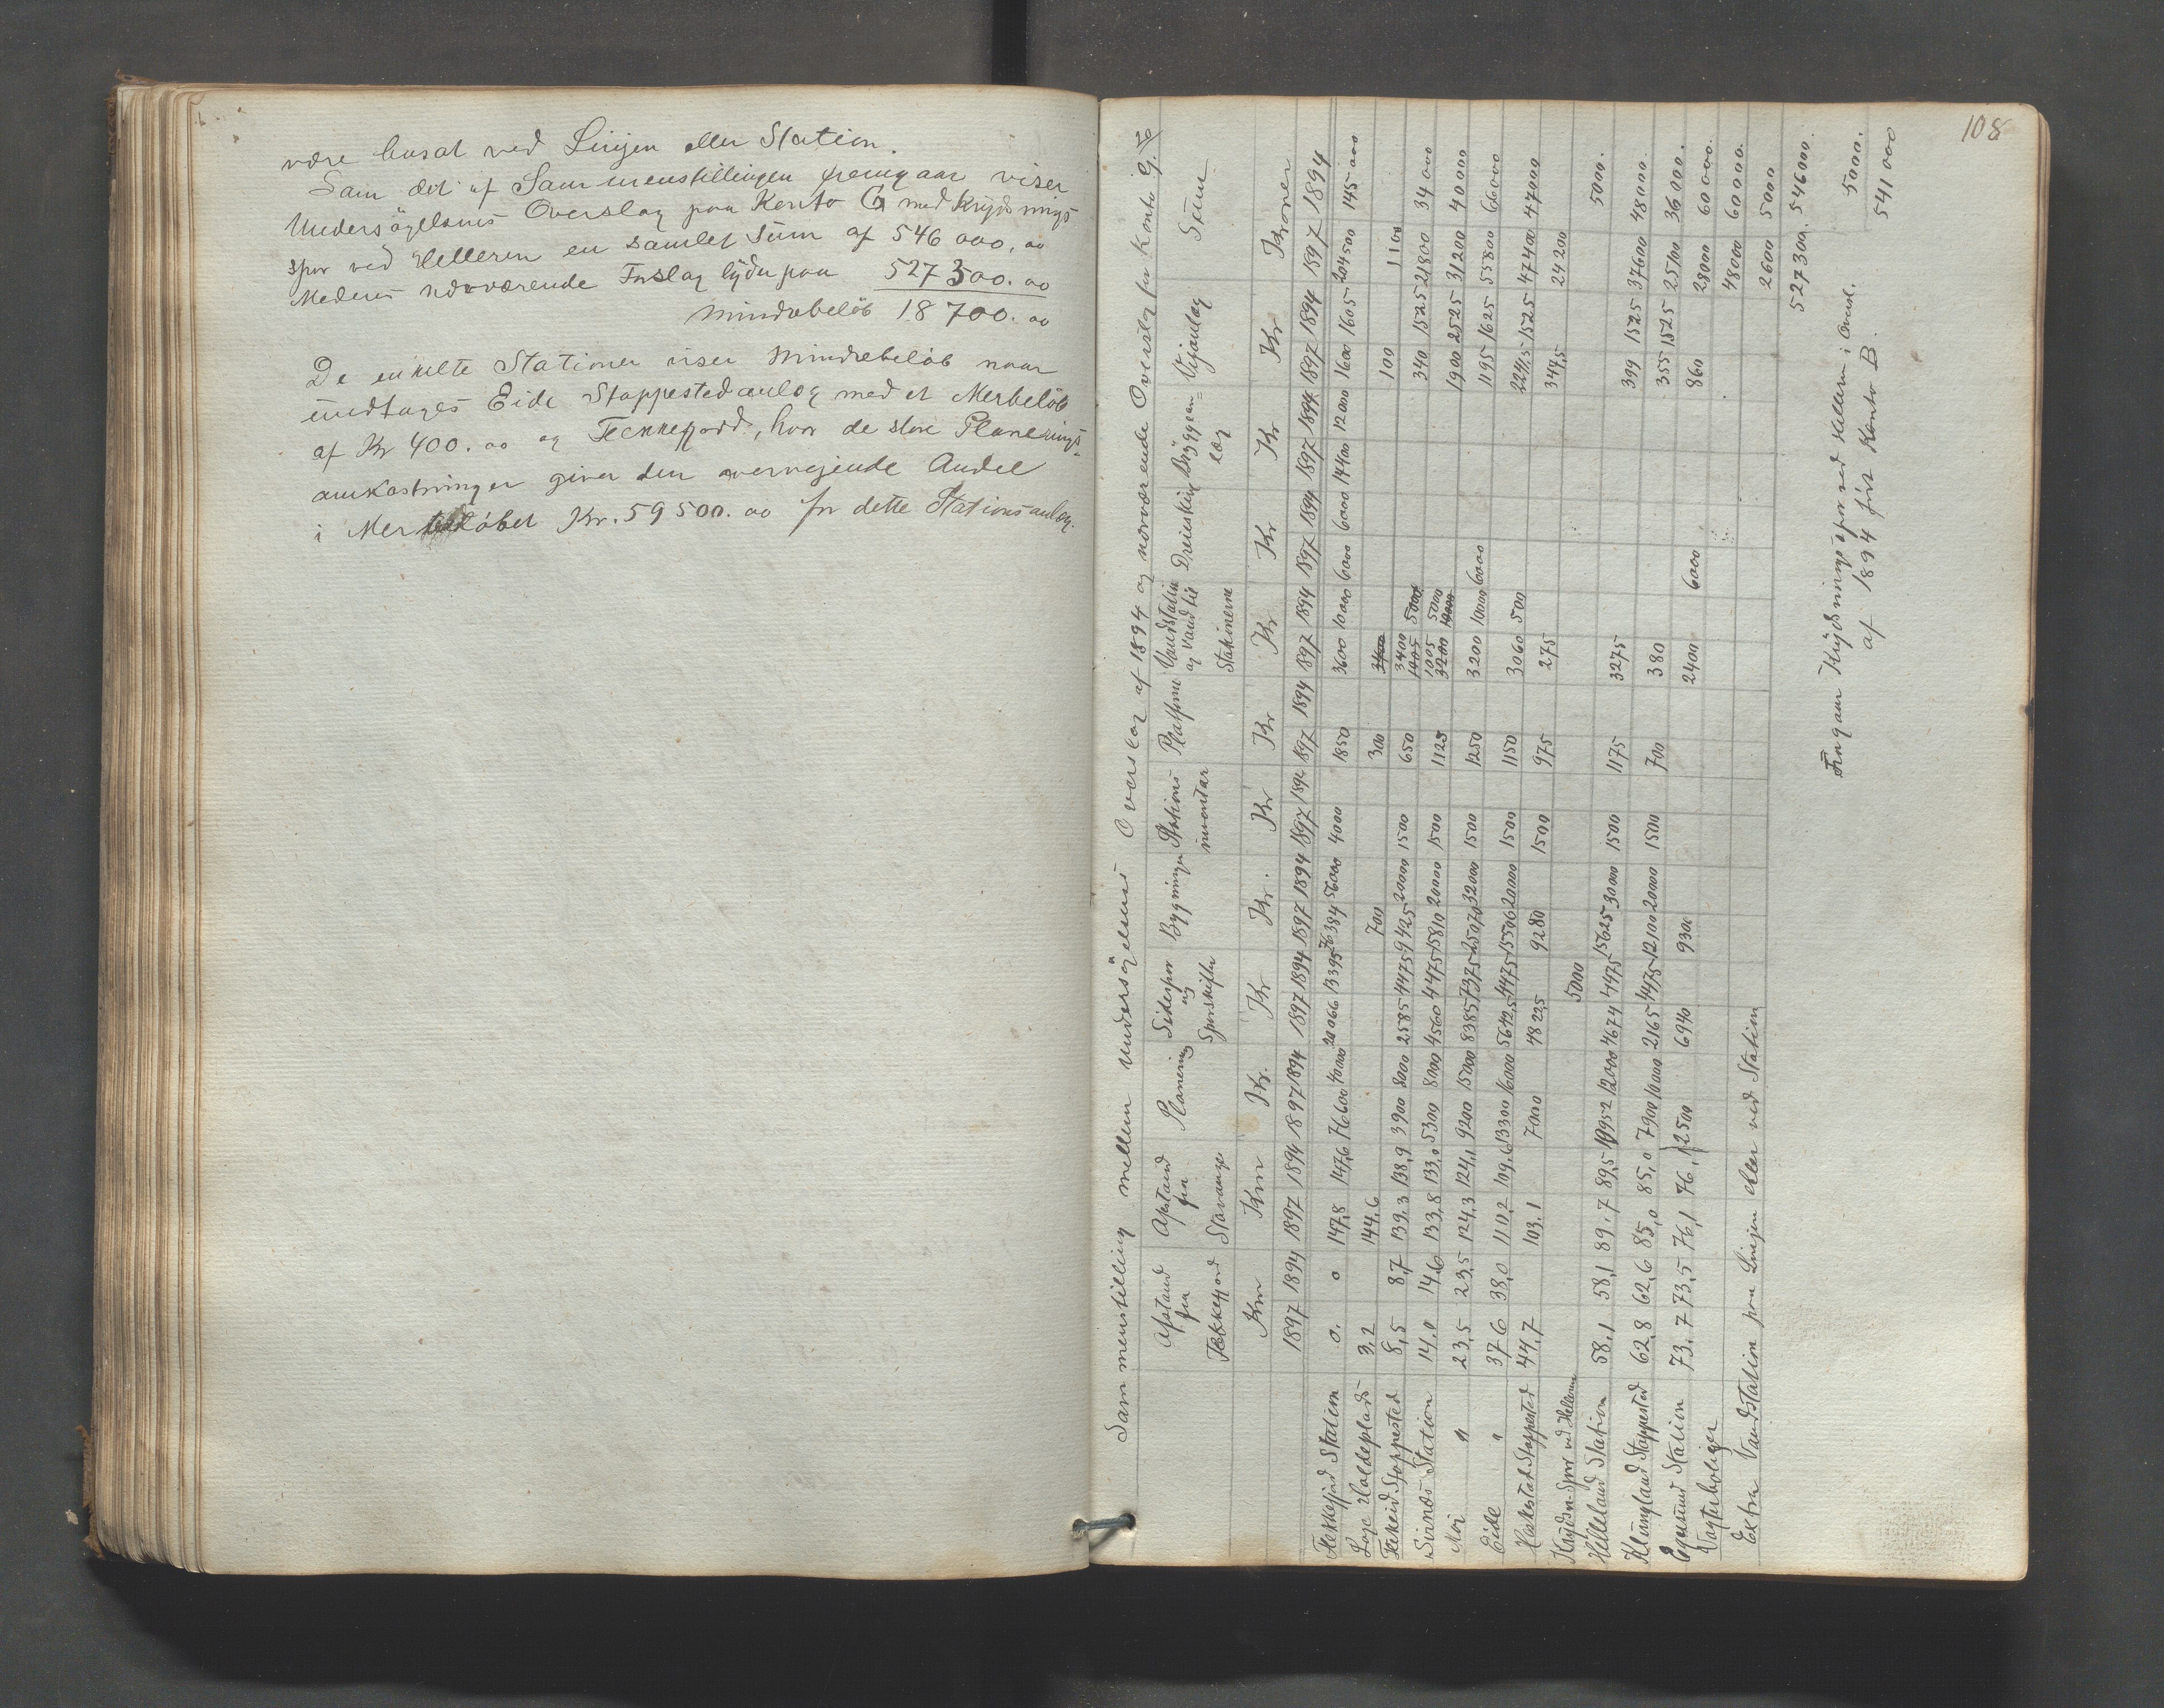 være bosat ved Linjen eller Station.
Som det af Sammenstillingen fremgaar viser
Undersögelsens Overslag paa Konto G med Krydsnings
spor ved Helleren en samlet Sum af 546 000,00
Medens nærværende Forslag lyder paa 527 300.00
Mindrebeløb 18 700.00
De enkelte Stationer viser Mindrebeløb naar
undtages Eide Stoppestedanlæg med et Merbeløb
af Kr 400.00 og Flekkefjord, hvor de store Planerings-
omkostninger giver den overvejende Andel
i Merbeløbet Kr. 59 500.00 for dette Stationsanlæg.
108
Sammenstilling mellem Undersögelsens Overslag af 1894 og nærværende Overslag for Konto G.
Afstand fra Flekkefjord Afstand fra Stavanger Planering Sidespor og Sporskifter Bygninger Stations inventar Platforme Vandstation og Vand til Stationerne Dreieskive Bryggeanlæg Vejanlæg Sum
Km Km Kr. Kr Kr. Kr Kr Kr Kr Kr Kr Kroner
1897 1894 1897 1894 1897 1894 1897 1894 1897 1894 1897 1894 1897 1894 1897 1894 1897 1894 1897 1894 1897 1894 1897 1894
Flekkefjord Station 0. 0 147,8 147,6 76600 40000 20066 13395 76384 56000 4000 1850 3600 10000 6000 6000 14400 12000 1600 1605 204500 145000
Loge Holdeplads 3,2 144,6 700 300 100 1100
Flikeid Stoppested 8,5 8,7 139,3 138,9 3900 8000 2585 4475 9425 20000 1500 650 3400 5000 340 1525 21800 34000
Sirnæs Station 14,0 14,6 133,8 133,0 5300 8000 4560 4475 15810 20000 1500 1125 1005 5000 1900 2525 31200 40000
Moi " 23,5 23,5 124,3 124,1 9200 15000 8385 7375 25070 32000 1500 1250 3200 10000 6000 1195 1625 55800 66000
Eide " 37,6 38,0 110,2 109,6 13300 16000 5642,5 4475 15506 20000 1500 1150 3060 500 2241,5 1525 47400 47000
Heskestad Stoppested 44,7 103,1 7000 4822,5 9280 1500 975 275 347,5 24200
Krydsn. Spor ved Helleren 5000 5000.
Helleland Station 58,1 58,1 89,7 89,5 9952 12000 4674 4475 15625 30000 1500 1175 3275 399 1525 37600 48000.
Klungland Stoppested 62,8 62,6 85,0 85,0 7900 10000 2165 4475 12100 20000 1500 700 380 355 1525 25100 36000.
Egersund Station 73,7 73,5 76,1 76,1 2500 6940 9300 2400 6000 860 28000 60000.
Vogterboliger 48000 60000.
Extra Vandstation paa Linjen eller ved Station 2600 5000
527300. 546000.
Fragaar Krydsningsspor ved Helleren i Overs. 5000.
af 1894 ført Konto B. 541000